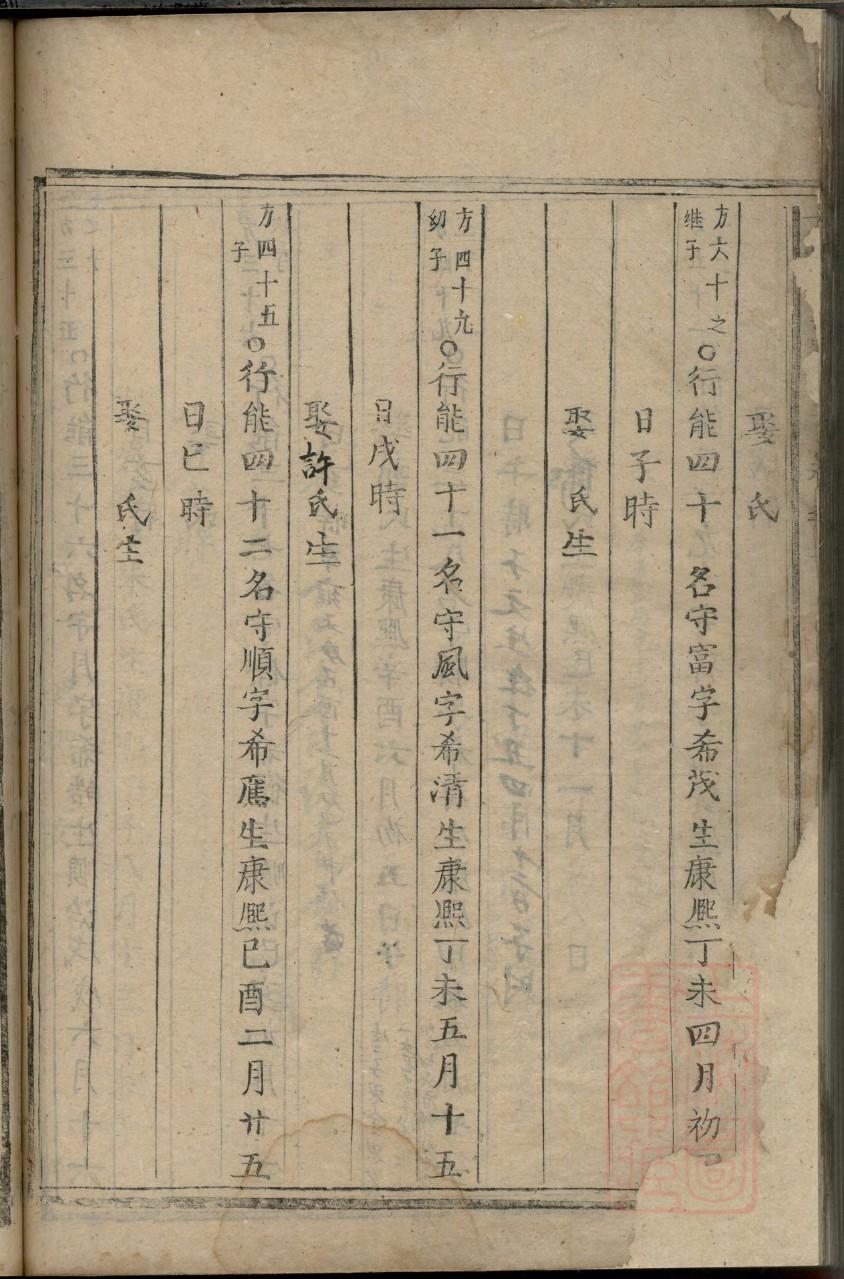 娶　氏
方六十之繼子○行能四十九名守富字希茂生康熙丁未四月初
日子時
娶　氏生
方四十九幼子○行能四十一名守風字希清生康熙丁未五月十五
日戌時
娶許氏生
方四十五子○行能四十二名守順字希鴈生康熙己酉二月廿五
日巳時
娶　氏生